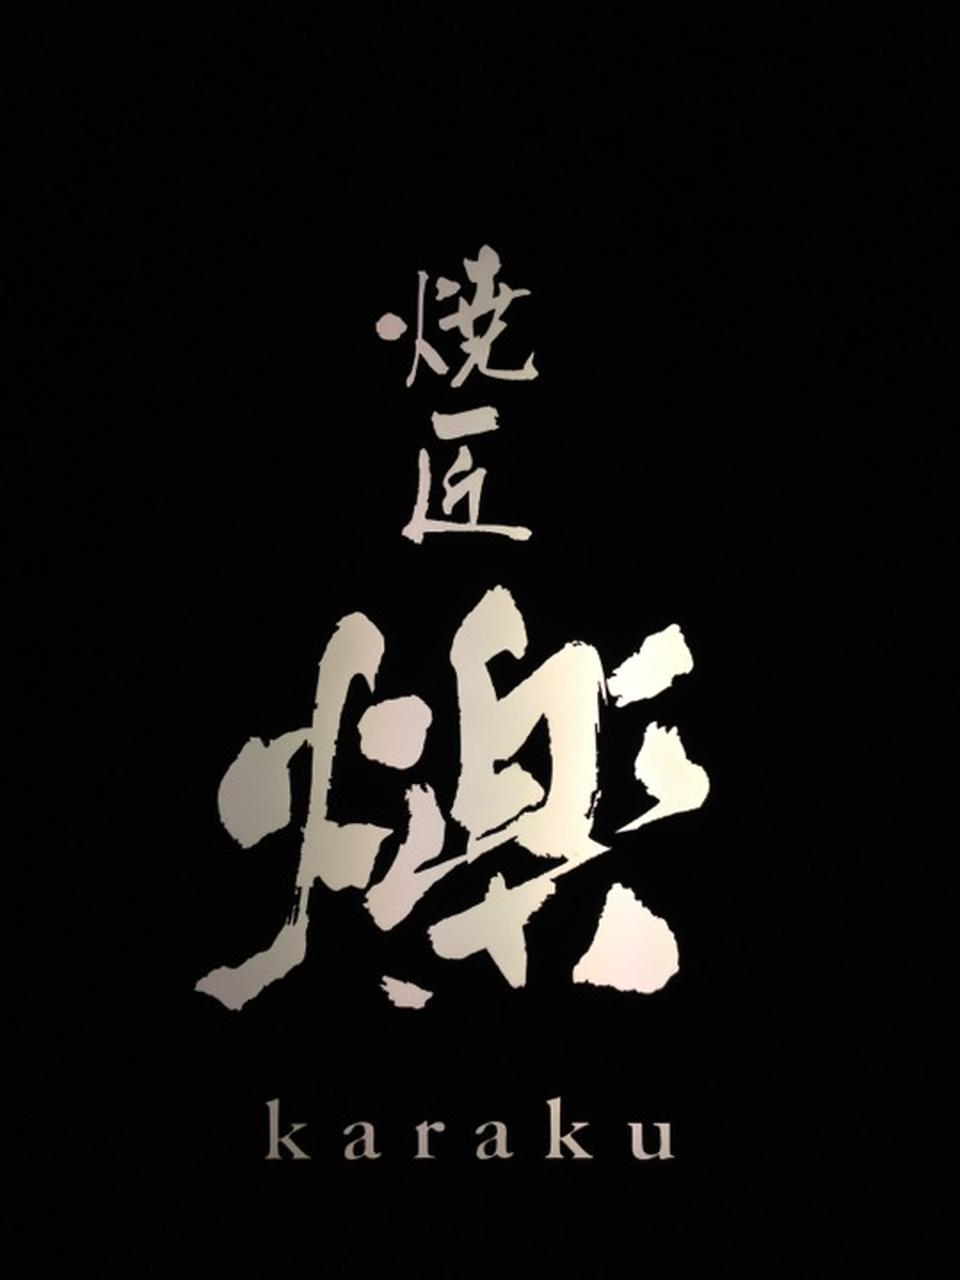 焼
匠
爍
karaku